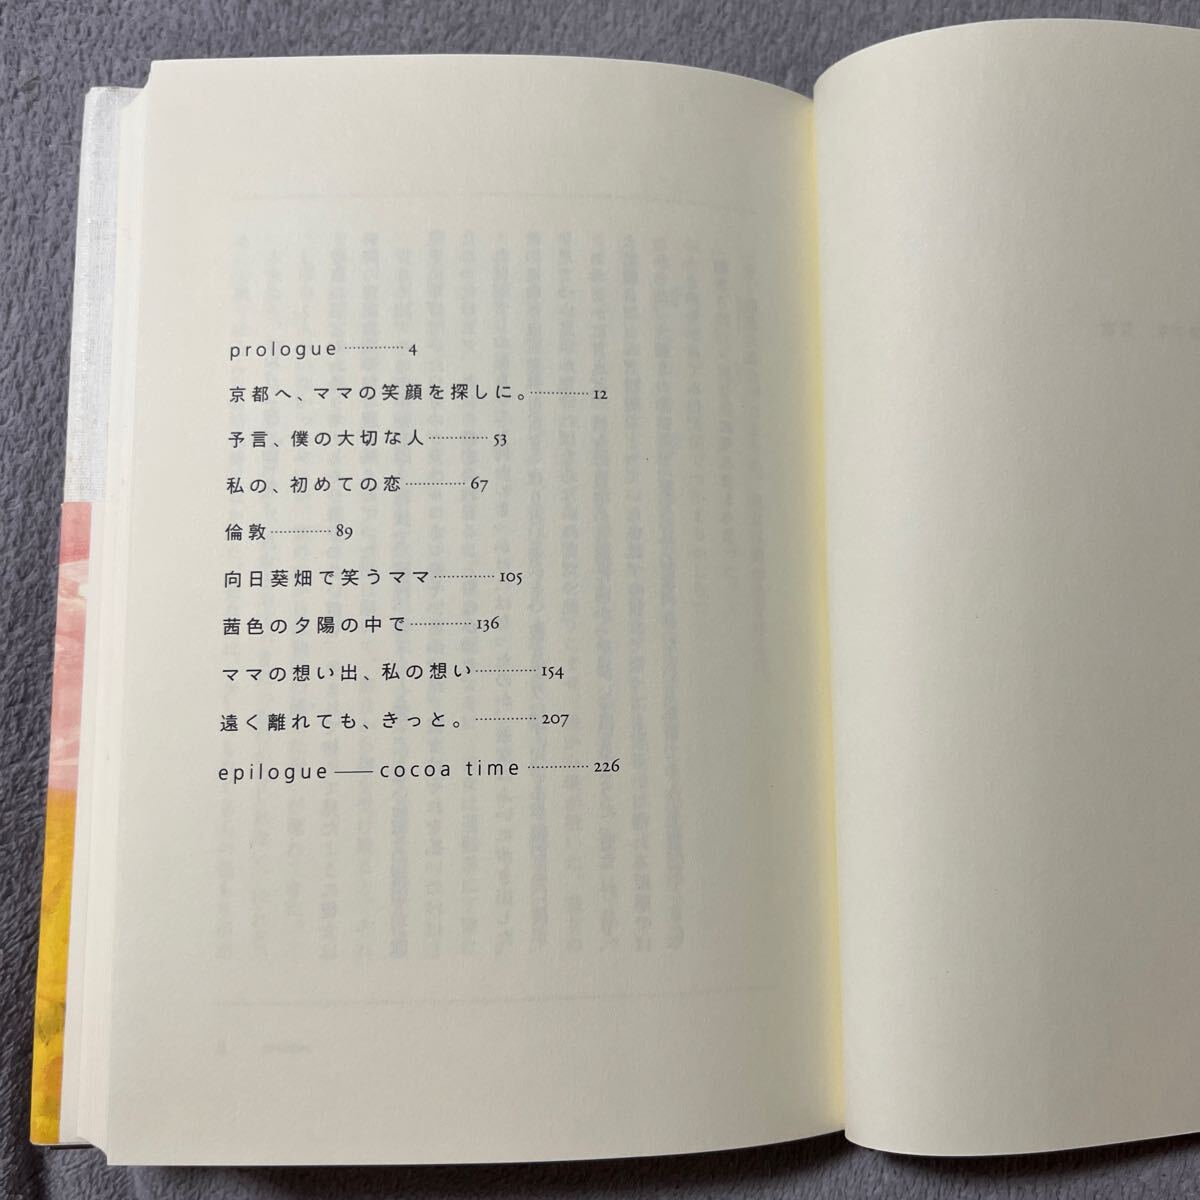 prologue ………… 4
京都へ、ママの笑顔を探しに。………… 12
予言、僕の大切な人………… 53
私の、初めての恋………… 67
倫敦………… 89
向日葵畑で笑うママ………… 105
茜色の夕陽の中で………… 136
ママの想い出、私の想い………… 154
遠く離れても、きっと。………… 207
epilogue —— cocoa time ………… 226